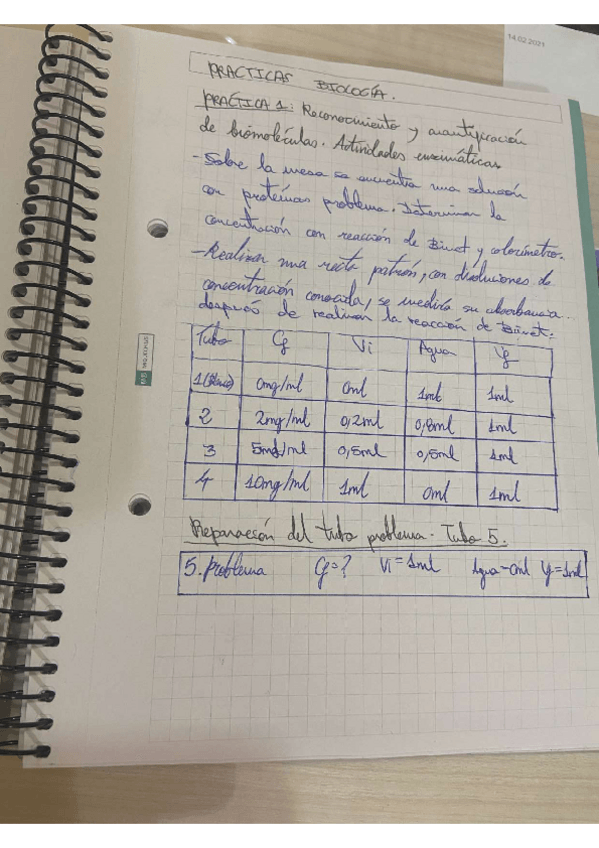 14.02.2021
PRACTICAS BIOLOGÍA.
PRACTICA 1: Reconocimiento y cuantificación
de biomoléculas. Actividades enzimáticas
- Sobre la mesa se encuentra una solución
con proteínas problema. Determinar la
concentración con reacción de Biuret y colorímetro.
- Realizar una recta patrón, con disoluciones de
concentración conocida, se medirá su absorbancia
después de realizar la reacción de Biuret.
Tubo Cf Vi Agua Vf
1 0mg/ml 0ml 1ml 1ml
2 2mg/ml 0,2ml 0,8ml 1ml
3 5mg/ml 0,5ml 0,5ml 1ml
4 10mg/ml 1ml 0ml 1ml
Preparación del tubo problema. Tubo 5.
5. Problema Cf=? Vi=1ml Agua=0ml Vf=1ml